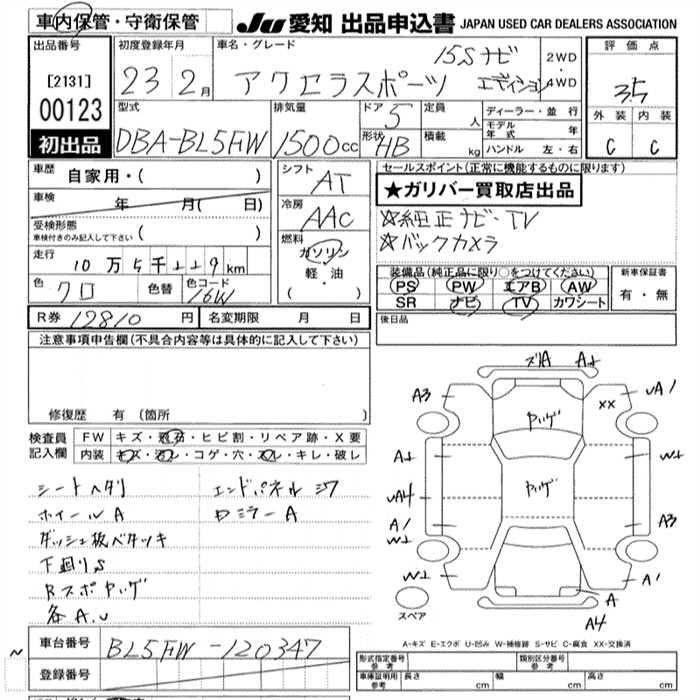 車内保管・守衛保管
JU 愛知 出品申込書 JAPAN USED CAR DEALERS ASSOCIATION
出品番号
[2131]
00123
初出品
初度登録年月
23 2月
車名・グレード
アクセラスポーツ
15S ナビ
エディション
2WD
・
4WD
評価点
3.5
外装 内装
C C
型式
DBA-BL5FW
排気量
1500cc
ドア 5
形状 HB
定員 人
積載 kg
ディーラー・並行
モデル年式 年
ハンドル 左・右
車歴 自家用・( )
車検 年 月( 日)
受検形態
車検付きのみ記入して下さい ( )
走行 10万5千229km
色 クロ 色替 色コード 16W
シフト AT
冷房 AAC
燃料
ガソリン
軽・油
( ・ )
セールスポイント(正常に機能するものに限ります)
★ガリバー買取店出品
☆純正ナビ・TV
☆バックカメラ
装備品(純正品に限り○をつけてください)
PS PW エアB AW
SR ナビ TV カワシート
新車保証書
有・無
R券 12810 円 名変期限 月 日
後日品
注意事項申告欄(不具合内容等は具体的に記入して下さい)
修復歴 有 (箇所 )
検査員記入欄
FW キズ・飛石・ヒビ割・リペア跡・X要
内装 キズ・汚レ・コゲ・穴・スレ・キレ・破レ
シートヘタリ
ホイールA
ダッシュ板ベタツキ
下廻りS
各A.U
エンドパネル
ロミラーA
ズリA
A3
XX
ヤハゲ
ヤハゲ
A1
A3
A1
A
A4
スペア
A-キズ E-エクボ U-凹み W-補修跡 S-サビ C-腐食 XX-交換済
車台番号 BL5FW-120347
登録番号
~
形式指定番号 参考
類別区分番号 参考
車庫証明用 参考 長さ cm 幅 cm 高さ cm